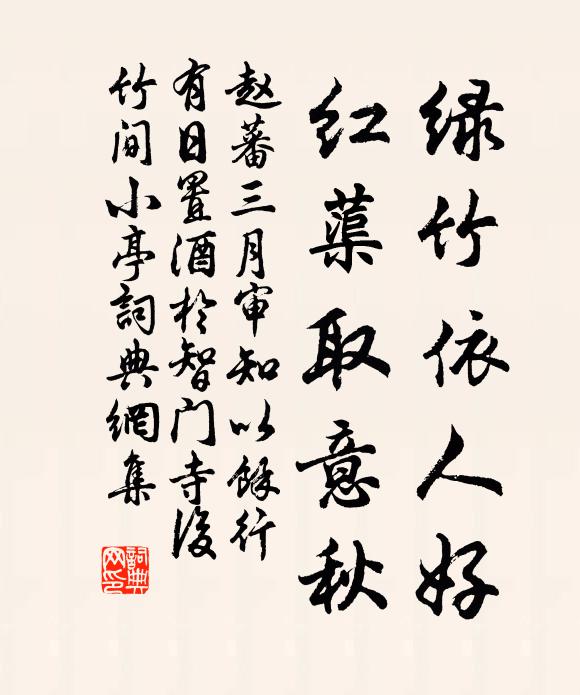 绿竹依人好
红蕖取意秋
赵蕃三月审知以馀行
有日置酒於智门寺后
竹间小亭詞典網集
詞典网印